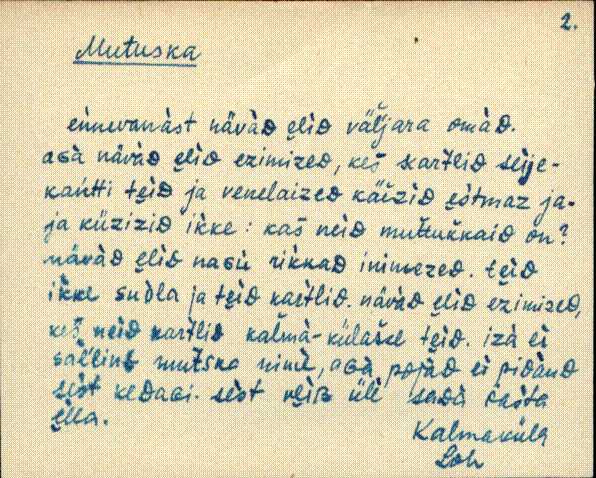 2.
Mutuska
ennevanàst nävàᴅ ęliᴅ väľjara omàᴅ.
aɢà nävàᴅ ęliᴅ ezimized, keš kartliᴅ seije-
kaǹtti teiᴅ ja venelaized käizid ęstmaz ja-
ja küzizid ikke: kaš neid muttukkaid on?
nävàᴅ ęliᴅ naɢu rikkad inimezed. teiᴅ
ikke sudla ja teiᴅ kartlid. nävàᴅ ęliᴅ ezimized,
keš neid kartlid kalmà-külašse teid. izà ei
salline mutska nime, aɢà pojàd ei pidànd
sest keᴅaɢi. sest veiʙ üli sadà āsta
ęlla.
Kalmaküla